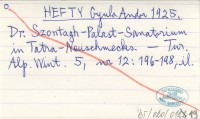 HEFTY Gyula Andor 1925.
Dr. Szontagh-Palast-Sanatorium
in Tatra-Neuschmecks. — Tur.
Alp. Wint. 5, nr 12: 196-198, il.